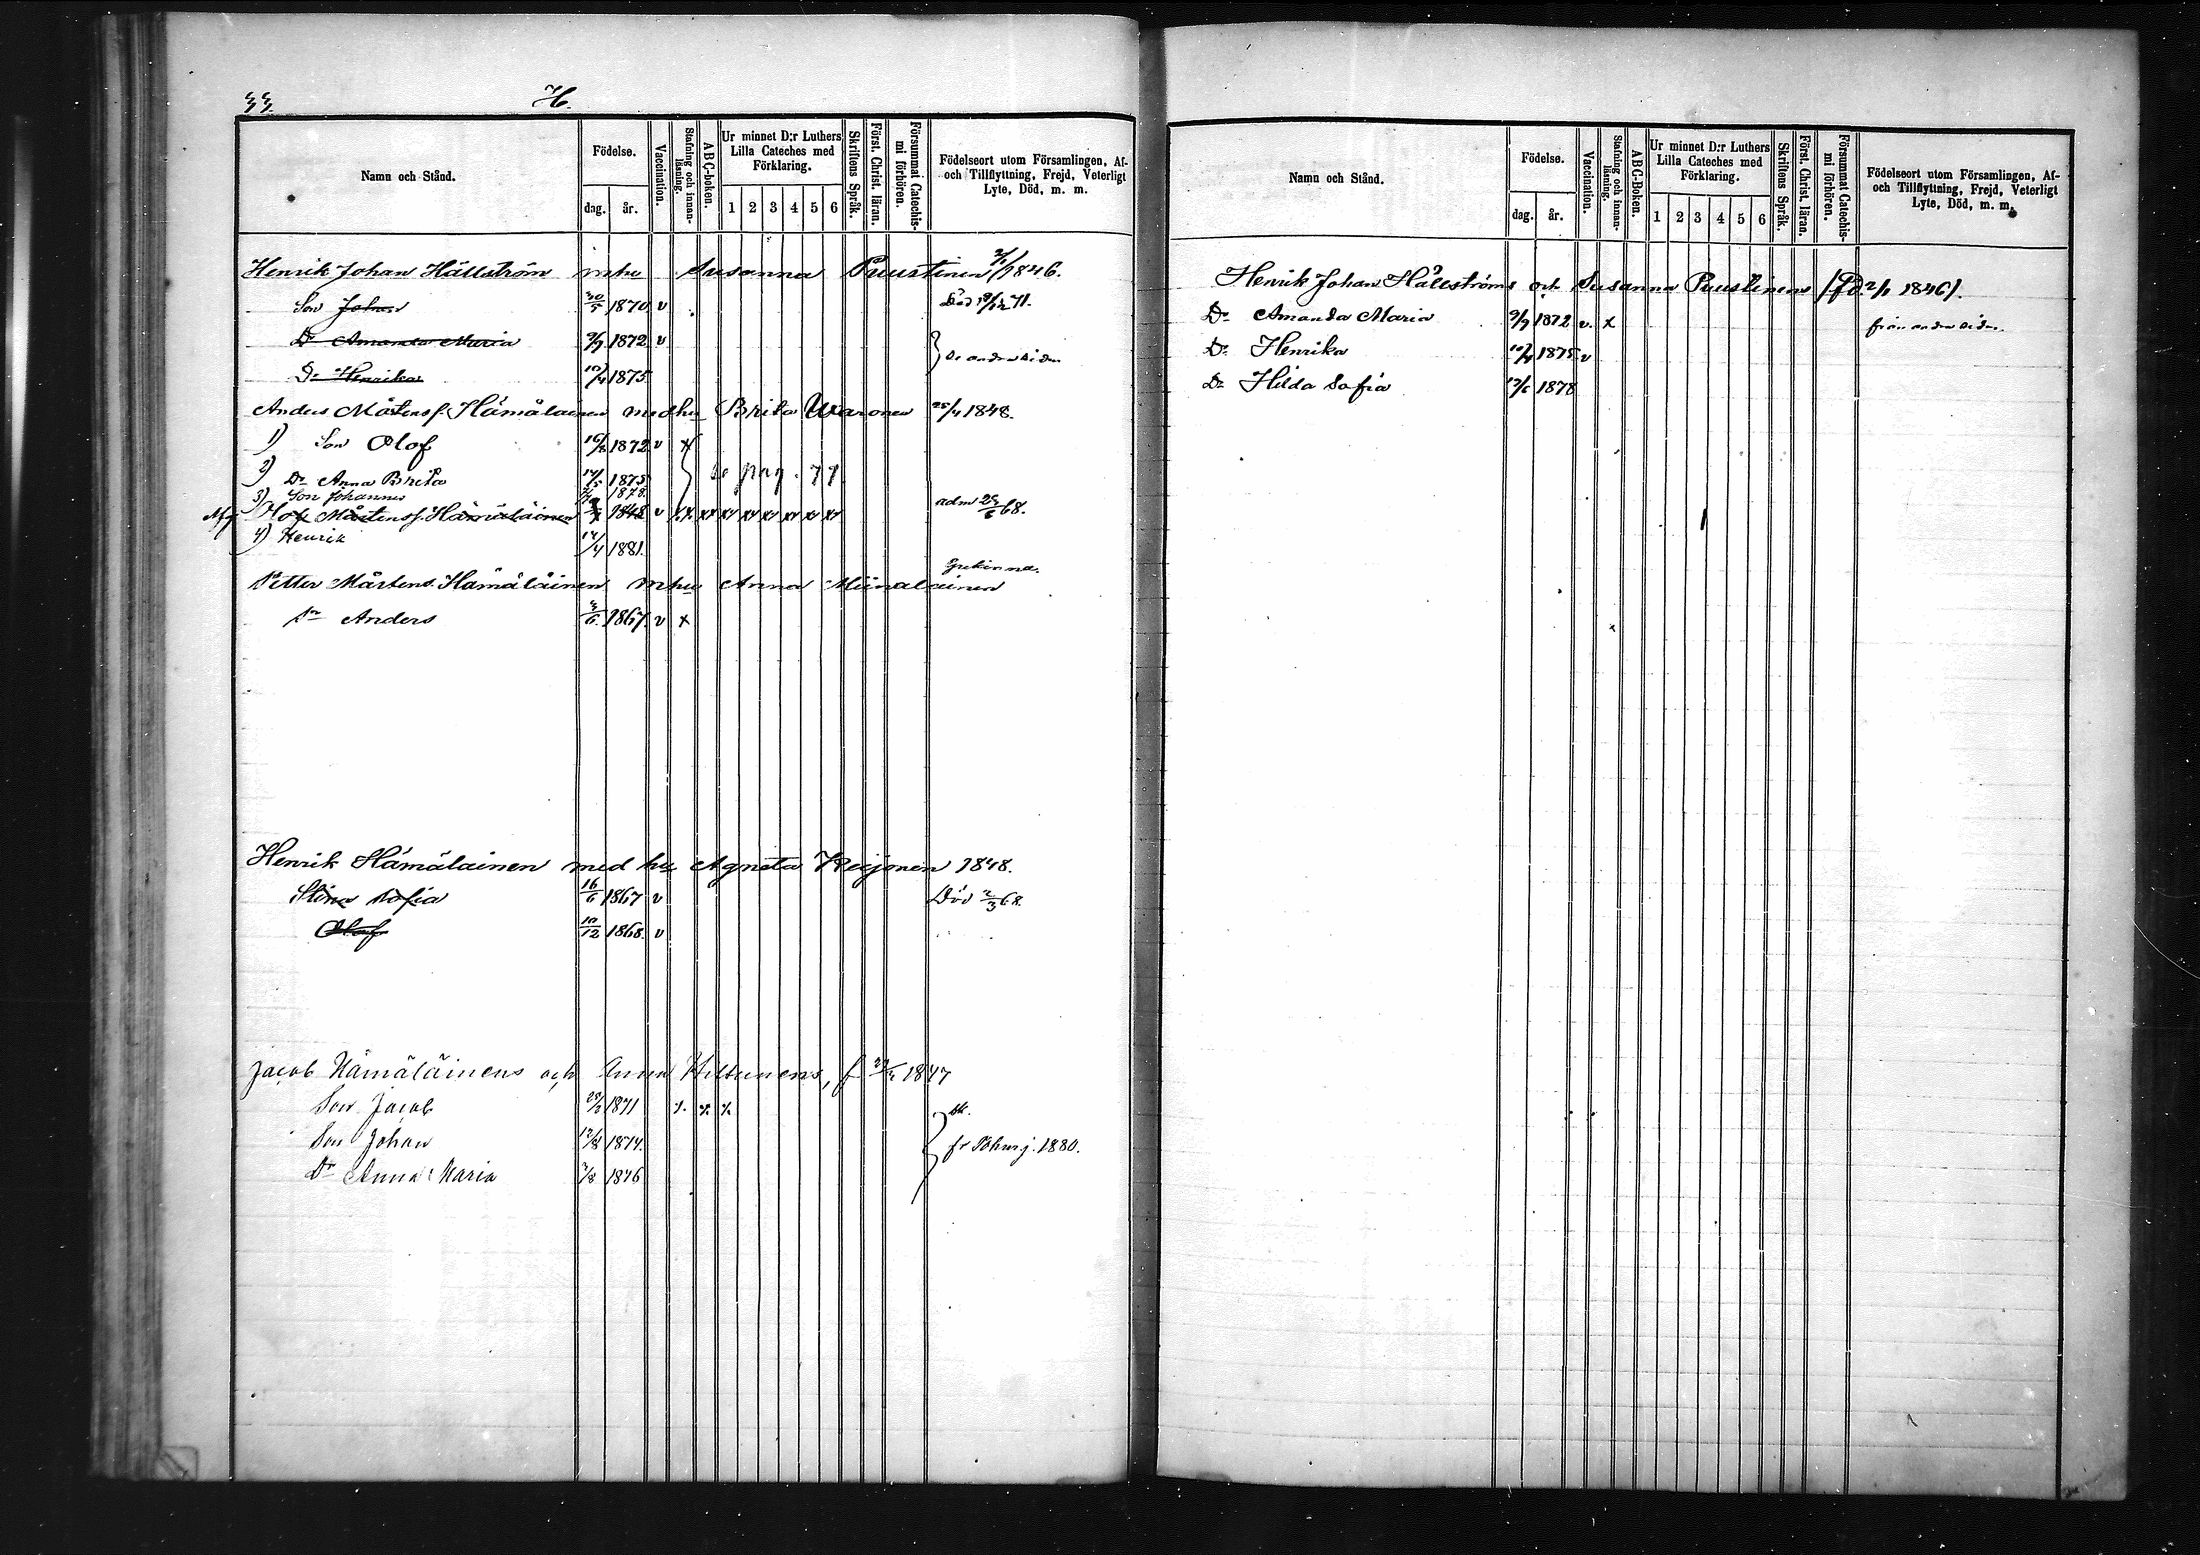 33. H.
Namn och Stånd. Födelse. dag. år. Vaccination. Stafning och innanläsning. ABC-boken. Ur minnet D:r Luthers Lilla Cateches med Förklaring. 1 2 3 4 5 6 Skriftens Språk. Först. Christ. läran. Försummat Catechismi förhören. Födelseort utom Församlingen, Af- och Tillflyttning, Frejd, Veterligt Lyte, Död, m. m.
Henrik Johan Hällström mhu Susanna Puustinen 2/1 1846.
Son Johan 30/5 1870 v Död 19/12 71.
Dr Amanda Maria 9/9 1872 v
Dr Henrika 10/4 1875 } se andra sidan
Anders Mårtensf. Hämäläinen medhu Brita Waronen 25/4 1848.
1) Son Olof 16/8 1872 v x
2) Dr Anna Brita 14/5 1875 } se pag. 77
3) Son Johannes 1878.
Olof Mårtensf. Hämäläinen 1848 v adm 28/6 68.
4) Henrik 14/4 1881.
Petter Mårtens. Hämäläinen mhu Anna Miinalainen
Sn Anders 3/6 1867 v x
Henrik Hämäläinen med hu Agneta Reijonen 1848.
Stina Sofia 16/6 1867 v Död 2/3 68.
Olof 10/12 1868. v
Jacob Hämäläinens och Anna Hiltunens, f 1847
Son Jacob 28/2 1871
Son Johan 12/8 1874. } fr 1880.
Dr Anna Maria 3/8 1876
Namn och Stånd. Födelse. dag. år. Vaccination. Stafning och innanläsning. ABC-Boken. Ur minnet D:r Luthers Lilla Cateches med Förklaring. 1 2 3 4 5 6 Skriftens Språk. Först. Christ. läran. Försummat Catechismi förhören. Födelseort utom Församlingen, Af- och Tillflyttning, Frejd, Veterligt Lyte, Död, m. m.
Henrik Johan Hällströms och Susanna Puustinens (fd. 2/1 1846).
Dr Amanda Maria 9/9 1872 v. x från andra sidan.
Dr Henrika 10/4 1875 v
Dr Hilda Sofia 13/6 1878